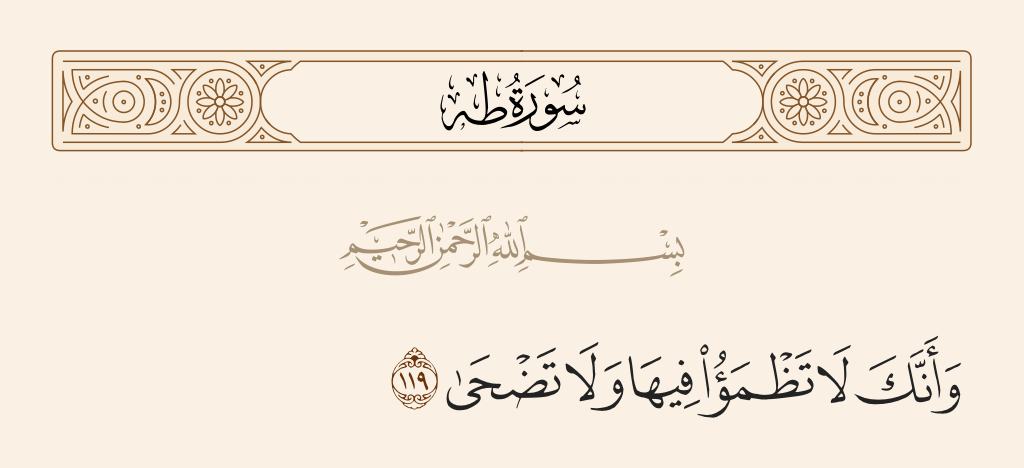 سُورَةُ طه
بِسْمِ ٱللَّهِ ٱلرَّحْمَٰنِ ٱلرَّحِيمِ
وَأَنَّكَ لَا تَظْمَؤُا۟ فِيهَا وَلَا تَضْحَىٰ ١١٩